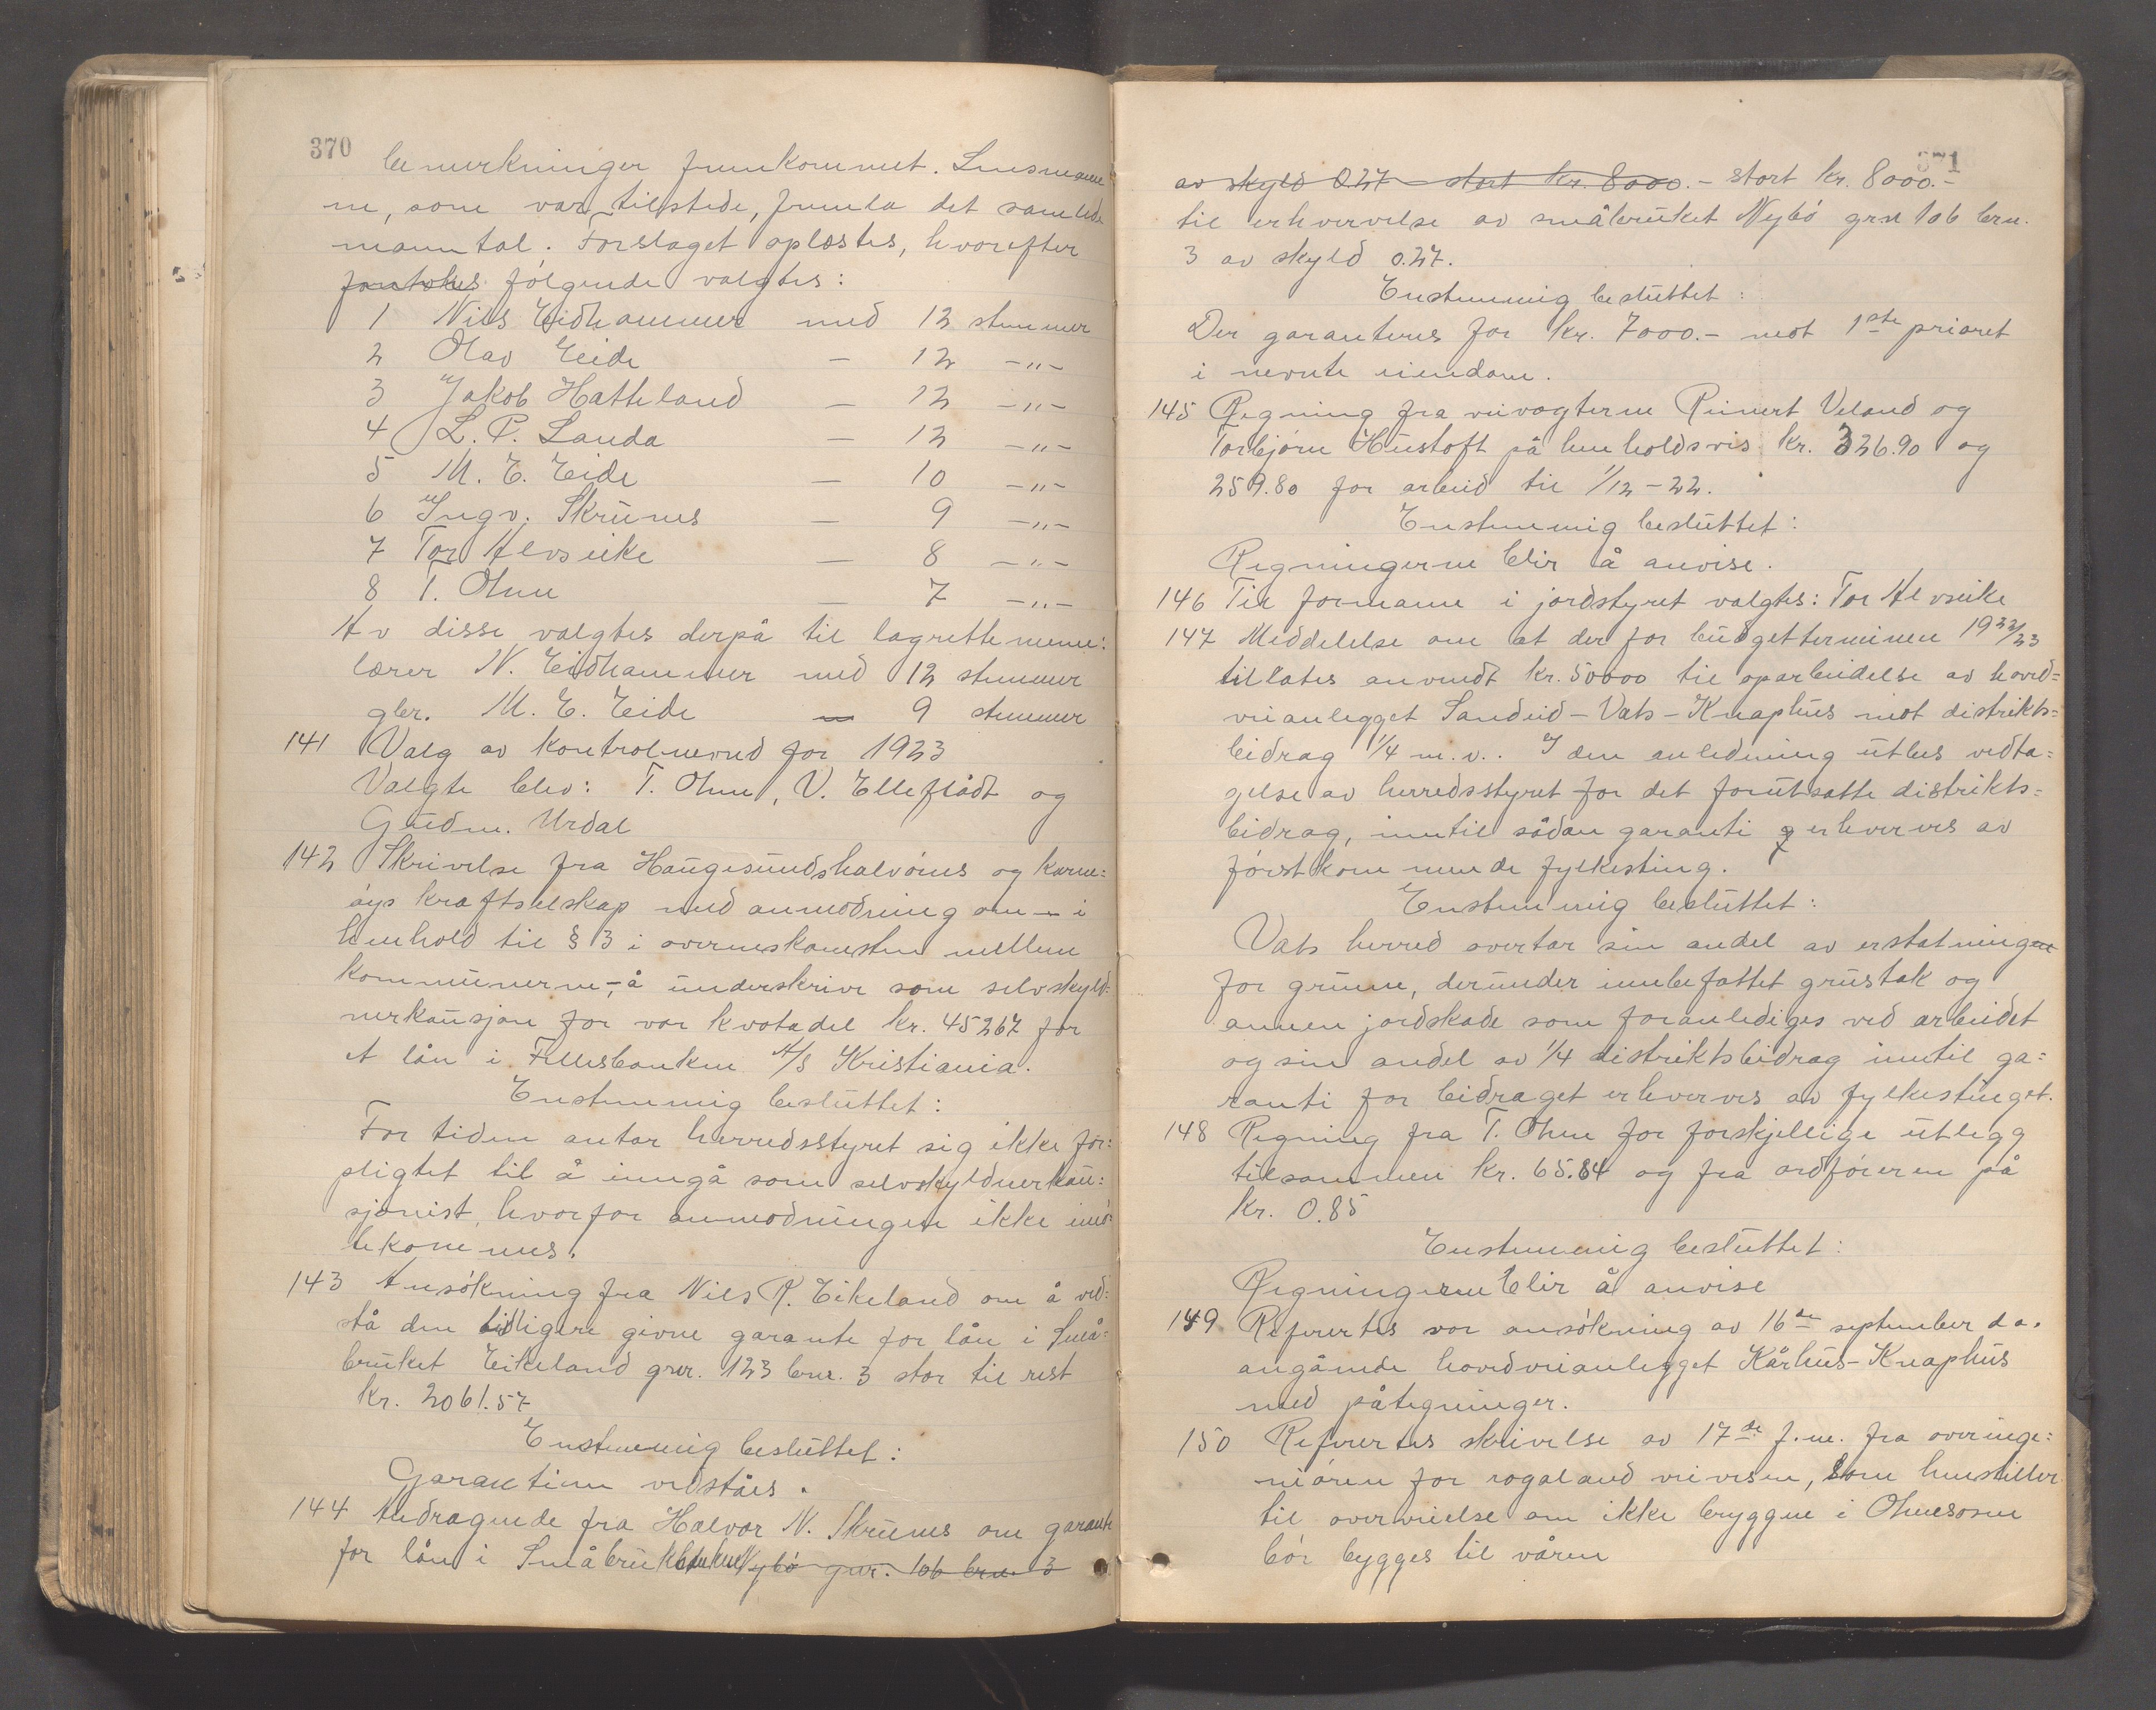 370
bemerkninger fremkommet. Lensmanne
ne, som var tilstede, fremla det samlede
manntal. Forslaget oplæstes, hvorefter
foretokes følgende valgtes:
1 Nils Eidhammer med 12 stemmer
2 Olav Eide — 12 —"—
3 Jakob Hatteland — 12 —"—
4 L. P. Landa — 12 —"—
5 M. E. Eide — 10 —"—
6 Ingv. Skrunes — 9 —"—
7 Tor Alvseike — 8 —"—
8 T. Ohm — 7 —"—
Av disse valgtes derpå til lagrettemenn:
lærer N. Eidhammer med 12 stemmer
gbr. M. E. Eide — 9 stemmer
141 Valg av kontrolnevnd for 1923
Valgte blev: T. Ohm, V. Elleflådt og
Gudm. Urdal
142 Skrivelse fra Haugesundshalvøens og Karm=
øys kraftselskap med anmodning om — i
henhold til § 3 i overenskomsten mellem
kommunerne -, å underskrive som selvskyld=
nerkausjon for vor kvotadel kr. 45267 for
et lån i Fellesbanken A/S Kristiania.
Enstemmig besluttet:
For tiden antar herredsstyret sig ikke for=
pligtet til å inngå som selvskyldnerkau=
sjonist, hvorfor anmodningen ikke imø=
tekommes.
143 Ansökning fra Nils R. Eikeland om å ved=
stå den tidligere givne garante for lån i Små=
bruket Eikeland gnr. 123 bnr. 3 stor til rest
kr. 2061.57
Enstemmig besluttet:
Garantien vedståes.
144 Andragende fra Halvor N. Skrunes om garante
for lån i Småbrukbanken Nybø gnr. 106 brn. 3
371
av skyld 0.27 stort kr. 8000.- stort kr. 8000.-
til erhvervelse av småbruket Nybö grn 106 brn.
3 av skyld 0.27.
Enstemmig besluttet:
Der garanteres for kr. 7000.- mot 1ste prioret
i nevnte eiendom.
145 Regning fra veivogterne Reinert Veland og
Torbjørn Hustoft på henholdsvis kr. 326.90 og
259.80 for arbeid til 1/12-22.
Enstemmig besluttet:
Regningerne blir å anvise.
146 Til formann i jordstyret valgtes: Tor Alvseike
147 Meddelelse om at der for budgetterminen 1922/23
tillates anvendt kr. 50000 til oparbeidelse av hoved=
veianlegget Sandeid-Vats-Knaphus mot distrikts=
bidrag 1/4 m.v.. I den anledning utbes vedta=
gelse av herredsstyret for det forutsatte distrikts=
bidrag, inntil sådan garanti erhverves av
førstkommende fylkesting.
Enstemmig besluttet:
Vats herred overtar sin andel av erstatningene
for grunn, derunder innbefattet grustak og
annen jordskade som foranlediges ved arbeidet
og sin andel av 1/4 distriktsbidrag inntil ga=
ranti for bidraget erhverves av fylkestinget.
148 Regning fra T. Ohm for forskjellige utlegg
tilsammen kr. 65.84 og fra ordføreren på
kr. 0.85
Enstemmig besluttet:
Regningerne blir å anvise
149 Refertes vor ansökning av 16de september d.a.
angående hovedveianlegget Kårhus-Knaphus
med påtegninger.
150 Refertes skrivelse av 17de f.m. fra overinge=
niøren for rogaland veivesen, som henstiller
til overveielse om ikke bryggen i Ohmsosen
bør bygges til våren